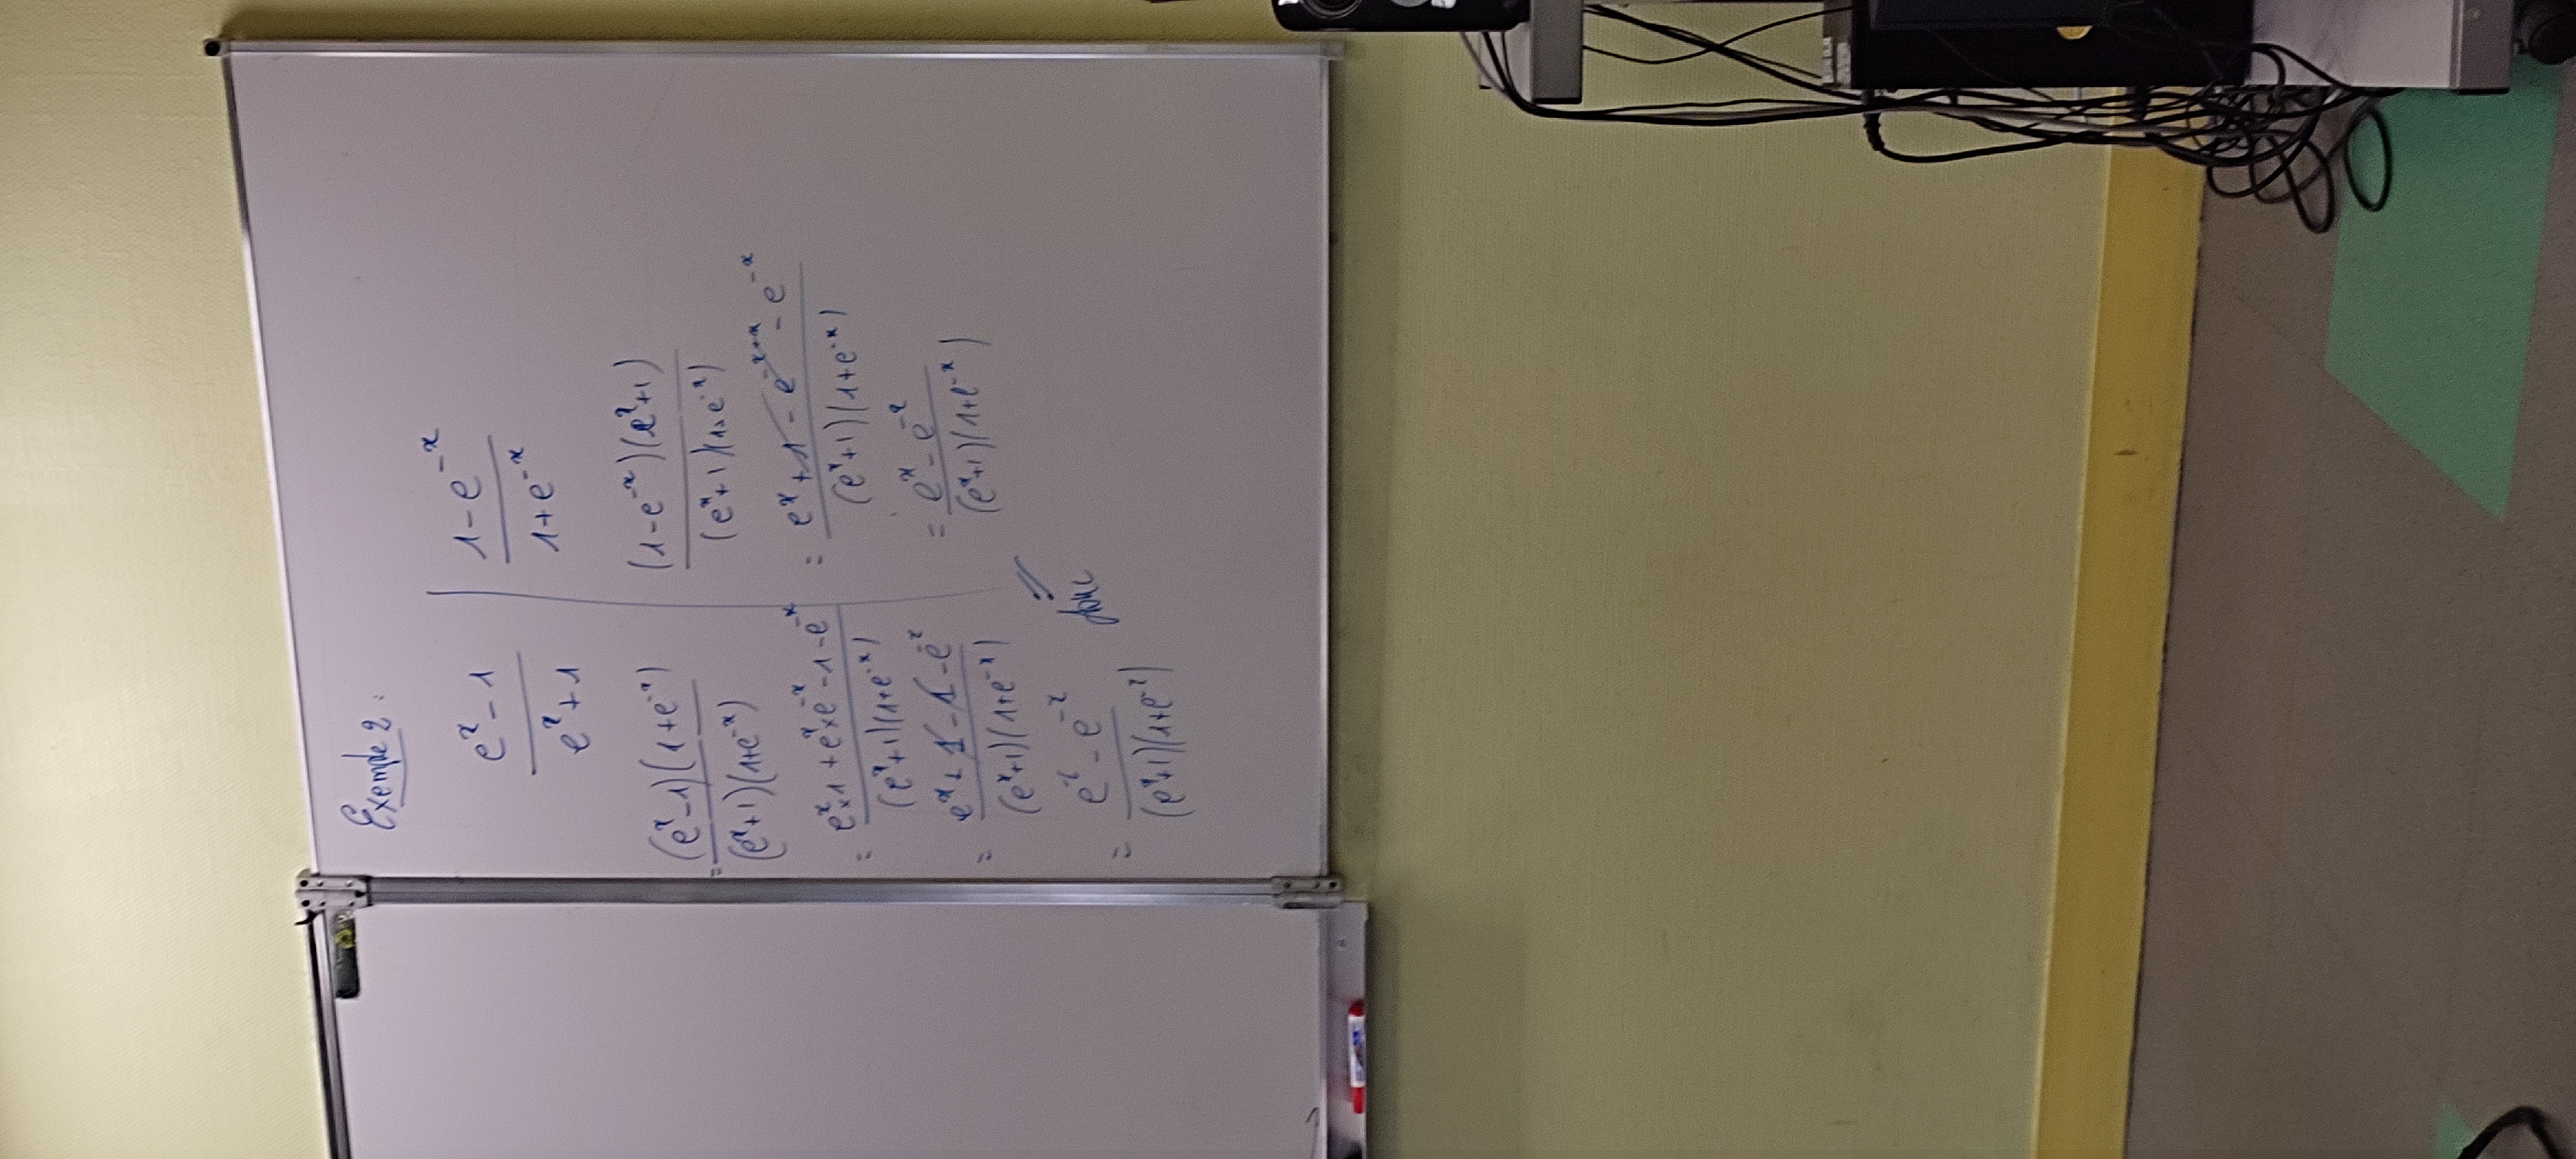 Exemple 2 :
e^x - 1 / e^x + 1
= (e^x - 1)(1 + e^-x) / (e^x + 1)(1 + e^-x)
= e^x × 1 + e^x × e^-x - 1 - e^-x / (e^x + 1)(1 + e^-x)
= e^x + 1 - 1 - e^-x / (e^x + 1)(1 + e^-x)
= e^x - e^-x / (e^x + 1)(1 + e^-x)
1 - e^-x / 1 + e^-x
(1 - e^-x)(e^x + 1) / (e^x + 1)(1 + e^-x)
= e^x + 1 - e^-x+x - e^-x / (e^x + 1)(1 + e^-x)
= e^x - e^-x / (e^x + 1)(1 + e^-x)
=
donc